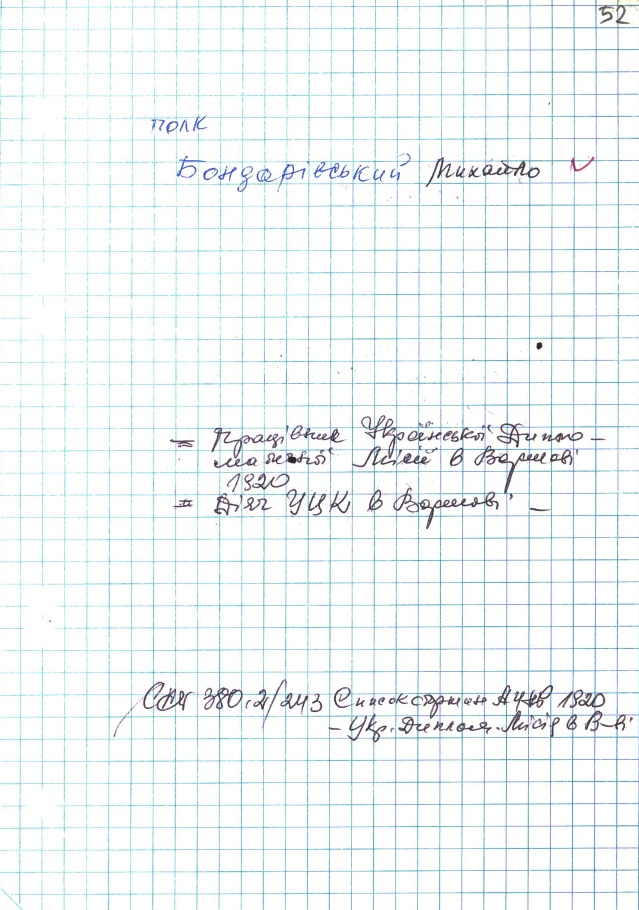 52
полк
Бондарівський Михайло
= Працівник Української Дипло-
матичної Місії в Варшаві
1920
= Діяч УЦК в Варшаві –
380.2/243 Список старшин 1920
– Укр. Диплом. Місія в В-ві